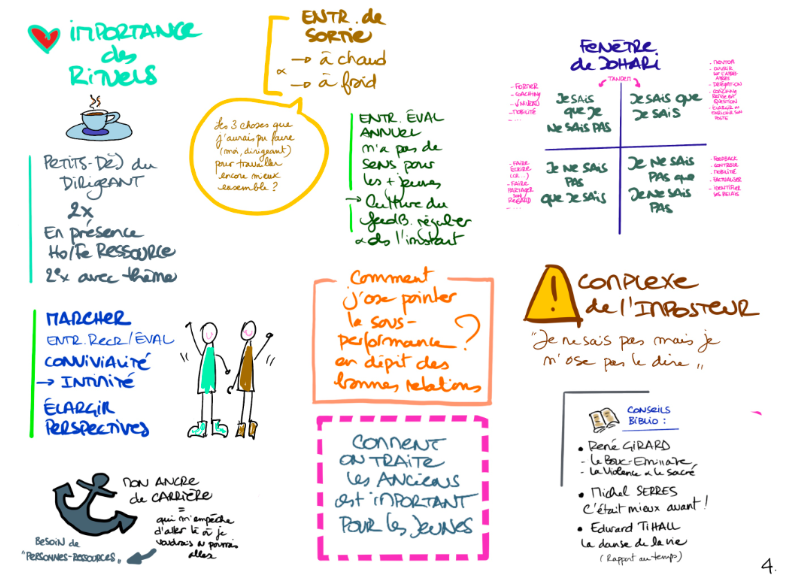 IMPORTANCE
des
RITUELS
PETITS-DÉJ du
DIRIGEANT
2x
En présence
Ho/Fe RESSOURCE
2x avec thème
MARCHER
ENTR. RECR/ÉVAL
CONVIVIALITÉ
→ INTIMITÉ
ÉLARGIR
PERSPECTIVES
MON ANCRE
de CARRIÈRE
=
qui m'empêche
d'aller là où je
voudrais ou pourrais
aller
BESOIN de
"PERSONNES-RESSOURCES"
ENTR. de
SORTIE
→ à chaud
→ à froid
Les 3 choses que
j'aurais pu faire
(moi, dirigeant)
pour travailler
encore mieux
ensemble ?
ENTR. ÉVAL
ANNUEL
n'a pas de
sens pour
les + jeunes
→ Culture du
feedB. régulier
& ds l'instant
Comment
j'ose pointer
la sous-
performance
en dépit des
bonnes relations
?
COMMENT
ON TRAITE
les ANCIENS
est IMPORTANT
POUR les JEUNES
FENÊTRE
de JOHARI
TANDEM
- COACHING
- MOBILITÉ
JE SAIS
que JE
NE SAIS PAS
JE SAIS QUE
JE SAIS
- MENTOR
- DÉLÉGATION
JE NE SAIS
PAS
QUE JE SAIS
JE NE SAIS
PAS que
JE NE SAIS
PAS
- FAIRE
ÉCRIRE
- FAIRE
PARTAGER
- FEEDBACK
- MOBILITÉ
- IDENTIFIER
LES RELAIS
!
COMPLEXE
de L'IMPOSTEUR
"Je ne sais pas mais je
n'ose pas le dire"
CONSEILS
BIBLIO :
• René GIRARD
- Le Bouc-Emissaire
- La Violence & le sacré
• Michel SERRES
C'était mieux avant !
• Edward T. HALL
La danse de la vie
(Rapport au temps)
4.